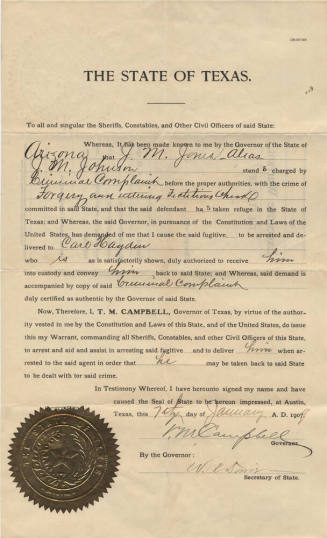 THE STATE OF TEXAS.
To all and singular the Sheriffs, Constables, and Other Civil Officers of said State:
Whereas, It has been made known to me by the Governor of the State of
Arizona that J. M. Jones Alias
J M. Johnson stand s charged by
Criminal Complaint before the proper authorities, with the crime of
Forgery and uttering Fictitious Check
committed in said State, and that the said defendant ha s taken refuge in the State of
Texas; and Whereas, the said Governor, in pursuance of the Constitution and Laws of the
United States, has demanded of me that I cause the said fugitive to be arrested and de-
livered to Carl Hayden
who is as is satisfactorily shown, duly authorized to receive him
into custody and convey him back to said State; and Whereas, said demand is
accompanied by copy of said Criminal Complaint
duly certified as authentic by the Governor of said State.
Now, Therefore, I, T. M. CAMPBELL, Governor of Texas, by virtue of the author-
ity vested in me by the Constitution and Laws of this State, and of the United States, do issue
this my Warrant, commanding all Sheriffs, Constables, and other Civil Officers of this State,
to arrest and aid and assist in arresting said fugitive and to deliver him when ar-
rested to the said agent in order that he may be taken back to said State
to be dealt with for said crime.
In Testimony Whereof, I have hereunto signed my name and have
caused the Seal of State to be hereon impressed, at Austin,
Texas, this 7th day of January A. D. 190
T. M. Campbell
Governor.
By the Governor:
Secretary of State.